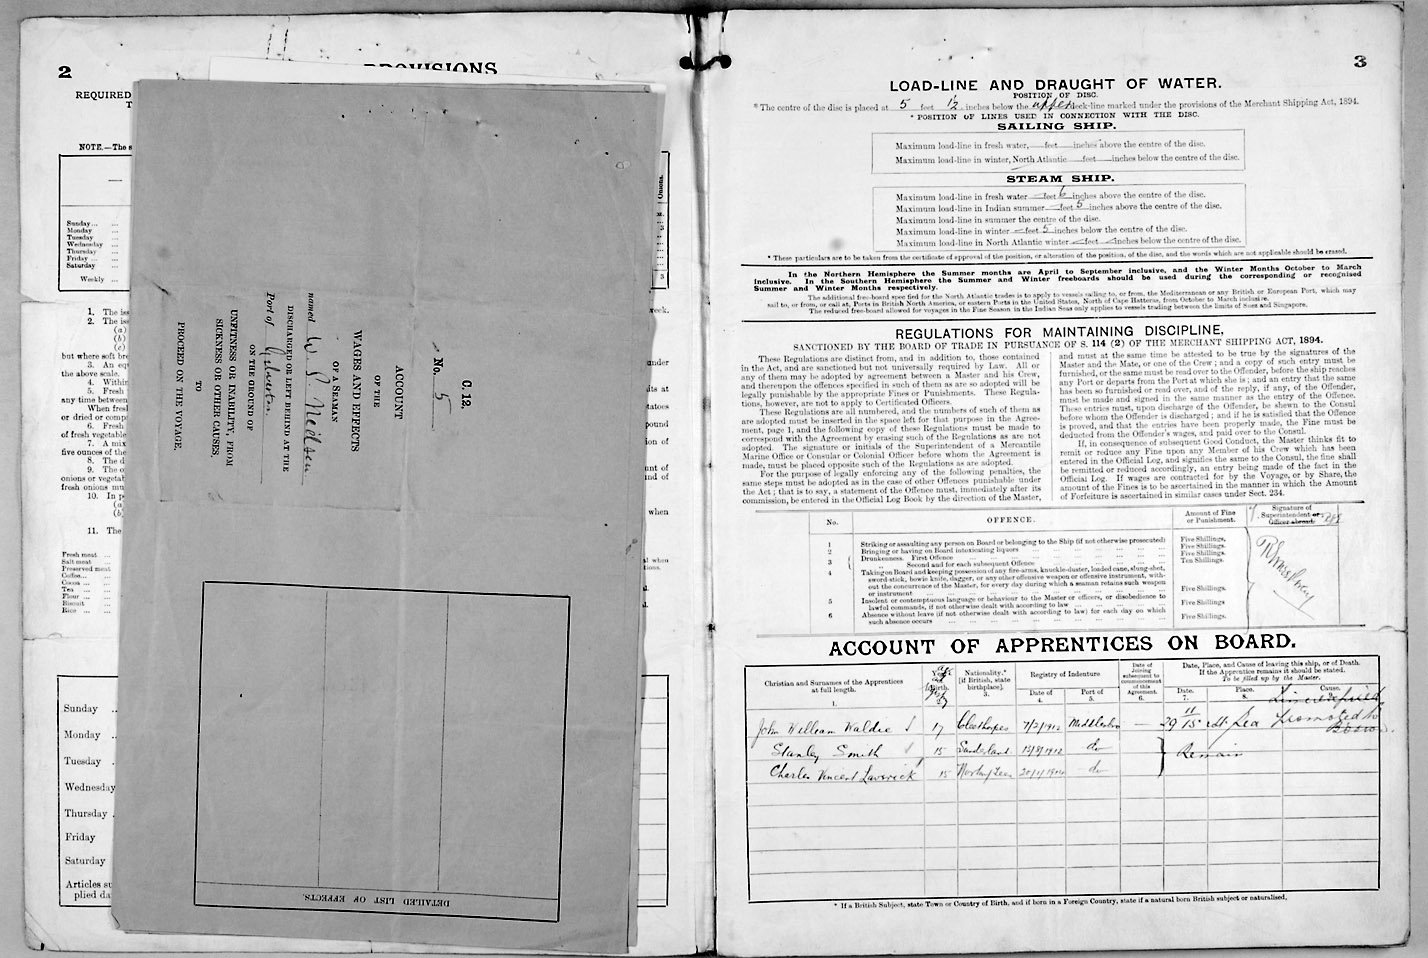 2
PROVISIONS
REQUIRED
NOTE.—The s
Onions.
Sunday ...
Monday
Tuesday
Wednesday
Thursday
Friday ...
Saturday
Weekly ...
1. The iss
2. The iss
(a)
(b)
(c)
but where soft bre
3. An equ
the above scale.
4. Within
5. Fresh
any time between
When fresh
or dried or comp
6. Fresh
of fresh vegetable
7. A mix
five ounces of the
8. The d
9. The o
onions or vegetab
fresh onions mu
10. In p
(a)
(b)
11. The
Fresh meat ...
Salt meat ...
Preserved meat
Coffee...
Cocoa ...
Tea ...
Flour ...
Biscuit
Rice ...
Sunday
Monday
Tuesday
Wednesday
Thursday
Friday
Saturday
Articles su
plied da
C. 12.
No. 5
ACCOUNT
OF THE
WAGES AND EFFECTS
OF A SEAMAN
named W. S. Neilsen
DISCHARGED OR LEFT BEHIND AT THE
Port of
ON THE GROUND OF
UNFITNESS OR INABILITY, FROM
SICKNESS OR OTHER CAUSES,
TO
PROCEED ON THE VOYAGE.
DETAILED LIST OF EFFECTS.
3
LOAD-LINE AND DRAUGHT OF WATER.
POSITION OF DISC.
* The centre of the disc is placed at 5 feet 1/2 inches below the upper deck-line marked under the provisions of the Merchant Shipping Act, 1894.
* POSITION OF LINES USED IN CONNECTION WITH THE DISC.
SAILING SHIP.
Maximum load-line in fresh water, — feet — inches above the centre of the disc.
Maximum load-line in winter, North Atlantic — feet — inches below the centre of the disc.
STEAM SHIP.
Maximum load-line in fresh water — feet 6 inches above the centre of the disc.
Maximum load-line in Indian summer — feet 5 inches above the centre of the disc.
Maximum load-line in summer the centre of the disc.
Maximum load-line in winter — feet 5 inches below the centre of the disc.
Maximum load-line in North Atlantic winter — feet — inches below the centre of the disc.
* These particulars are to be taken from the certificate of approval of the position, or alteration of the position, of the disc, and the words which are not applicable should be erased.
In the Northern Hemisphere the Summer months are April to September inclusive, and the Winter Months October to March
inclusive. In the Southern Hemisphere the Summer and Winter freeboards should be used during the corresponding or recognised
Summer and Winter Months respectively.
The additional free-board specified for the North Atlantic trades is to apply to vessels sailing to, or from, the Mediterranean or any British or European Port, which may
sail to, or from, or call at, Ports in British North America, or eastern Ports in the United States, North of Cape Hatteras, from October to March inclusive.
The reduced free-board allowed for voyages in the Fine Season in the Indian Seas only applies to vessels trading between the limits of Suez and Singapore.
REGULATIONS FOR MAINTAINING DISCIPLINE,
SANCTIONED BY THE BOARD OF TRADE IN PURSUANCE OF S. 114 (2) OF THE MERCHANT SHIPPING ACT, 1894.
These Regulations are distinct from, and in addition to, those contained
in the Act, and are sanctioned but not universally required by Law. All or
any of them may be adopted by agreement between a Master and his Crew,
and thereupon the offences specified in such of them as are so adopted will be
legally punishable by the appropriate Fines or Punishments. These Regula-
tions, however, are not to apply to Certificated Officers.
These Regulations are all numbered, and the numbers of such of them as
are adopted must be inserted in the space left for that purpose in the Agree-
ment, page 1, and the following copy of these Regulations must be made to
correspond with the Agreement by erasing such of the Regulations as are not
adopted. The signature or initials of the Superintendent of a Mercantile
Marine Office or Consular or Colonial Officer before whom the Agreement is
made, must be placed opposite such of the Regulations as are adopted.
For the purpose of legally enforcing any of the following penalties, the
same steps must be adopted as in the case of other Offences punishable under
the Act; that is to say, a statement of the Offence must, immediately after its
commission, be entered in the Official Log Book by the direction of the Master,
and must at the same time be attested to be true by the signatures of the
Master and the Mate, or one of the Crew; and a copy of such entry must be
furnished, or the same must be read over to the Offender, before the ship reaches
any Port or departs from the Port at which she is; and an entry that the same
has been so furnished or read over, and of the reply, if any, of the Offender,
must be made and signed in the same manner as the entry of the Offence.
These entries must, upon discharge of the Offender, be shewn to the Consul
before whom the Offender is discharged; and if he is satisfied that the Offence
is proved, and that the entries have been properly made, the Fine must be
deducted from the Offender's wages, and paid over to the Consul.
If, in consequence of subsequent Good Conduct, the Master thinks fit to
remit or reduce any Fine upon any Member of his Crew which has been
entered in the Official Log, and signifies the same to the Consul, the fine shall
be remitted or reduced accordingly, an entry being made of the fact in the
Official Log. If wages are contracted for by the Voyage, or by Share, the
amount of the Fines is to be ascertained in the manner in which the Amount
of Forfeiture is ascertained in similar cases under Sect. 234.
No. OFFENCE. Amount of Fine or Punishment. Signature of Superintendent or Officer abroad.
1 Striking or assaulting any person on Board or belonging to the Ship (if not otherwise prosecuted) Five Shillings.
2 Bringing or having on Board intoxicating liquors Five Shillings.
3 Drunkenness. First Offence Five Shillings.
„ Second and for each subsequent Offence Ten Shillings.
4 Taking on Board and keeping possession of any fire-arms, knuckle-duster, loaded cane, slung-shot,
sword-stick, bowie knife, dagger, or any other offensive weapon or offensive instrument, with-
out the concurrence of the Master, for every day during which a seaman retains such weapon
or instrument Five Shillings.
5 Insolent or contemptuous language or behaviour to the Master or officers, or disobedience to
lawful commands, if not otherwise dealt with according to law Five Shillings.
6 Absence without leave (if not otherwise dealt with according to law) for each day on which
such absence occurs Five Shillings.
ACCOUNT OF APPRENTICES ON BOARD.
Christian and Surnames of the Apprentices at full length. 1.
Year of Birth.
Nationality.* [if British, state birthplace]. 3.
Registry of Indenture
Date of 4.
Port of 5.
Date of Joining subsequent to commencement of this Agreement. 6.
Date, Place, and Cause of leaving this ship, or of Death. If the Apprentice remains it should be stated. To be filled up by the Master.
Date. 7.
Place. 8.
Cause.
John William Waldie 17 Cleethorpes 7/2/1912 Middlesbro — 29 11/15 At Sea promoted to Bosun
Stanley Smith 15 Sunderland 13/8/1912 do Remain
Charles Vincent Laverick 15 do
* If a British Subject, state Town or Country of Birth, and if born in a Foreign Country, state if a natural born British subject or naturalised.